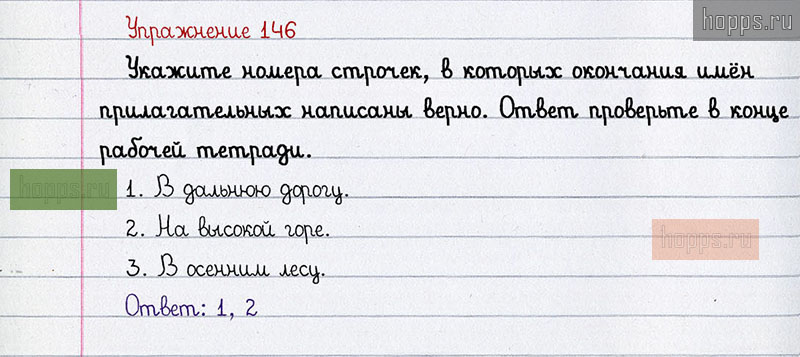 hopps.ru
Упражнение 146
Укажите номера строчек, в которых окончания имён
прилагательных написаны верно. Ответ проверьте в конце
рабочей тетради.
hopps.ru
1. В дальнюю дорогу.
2. На высокой горе.
hopps.ru
3. В осенним лесу.
Ответ: 1, 2